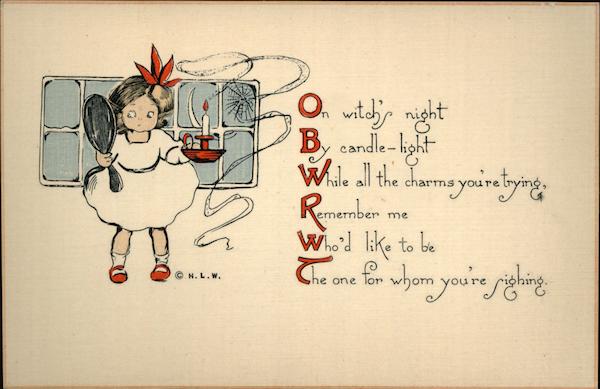 On witch's night
By candle-light
While all the charms you're trying,
Remember me
Who'd like to be
The one for whom you're sighing.
© N. L. W.